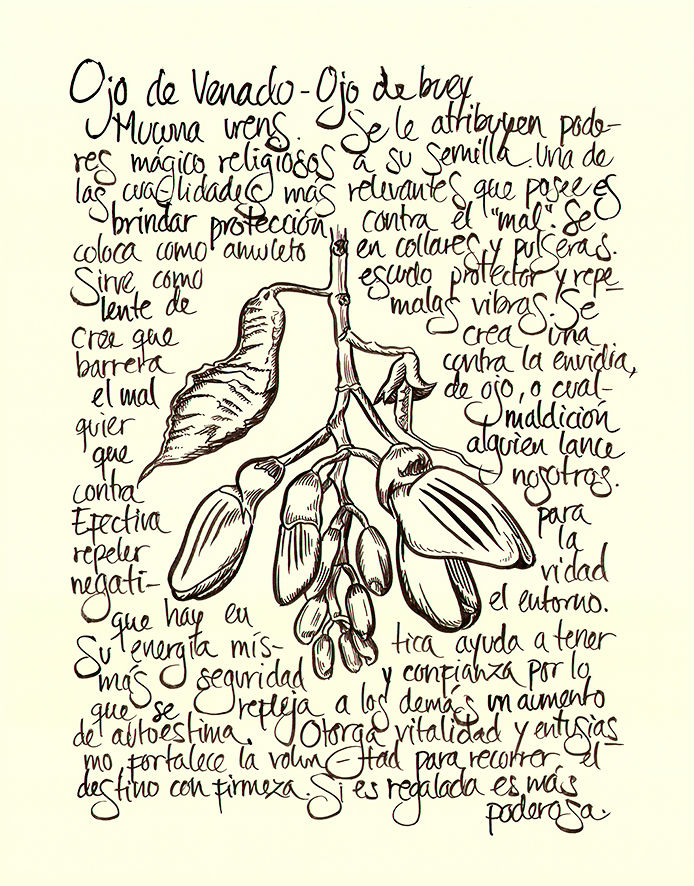 Ojo de Venado - Ojo de buey
Mucuna urens. Se le atribuyen pode-
res mágico religiosos a su semilla. Una de
las cualidades más relevantes que posee es
brindar protección contra el "mal". Se
coloca como amuleto en collares y pulseras.
Sirve, como escudo protector y repe-
lente de malas vibras. Se
cree que crea una
barrera contra la envidia,
el mal de ojo, o cual-
quier maldición
que alguien lance
contra nosotros.
Efectiva para
repeler la
negati- vidad
que hay en el entorno.
Su energía mís- tica ayuda a tener
más seguridad y confianza por lo
que se refleja a los demás un aumento
de autoestima. Otorga vitalidad y entusias-
mo fortalece la volun-tad para recorrer el
destino con firmeza. Si es regalada es más
poderosa.